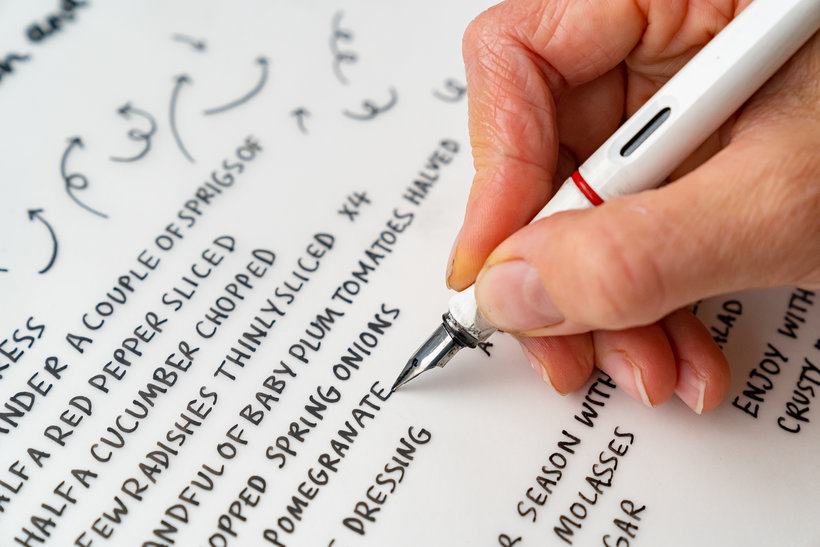 and
RESS
ANDER A COUPLE OF SPRIGS OF
ALF A RED PEPPER SLICED
HALF A CUCUMBER CHOPPED
FEW RADISHES THINLY SLICED X4
ANDFUL OF BABY PLUM TOMATOES HALVED
OPPED SPRING ONIONS
POMEGRANATE
- DRESSING
R SEASON WITH
MOLASSES
GAR
ALAD
ENJOY WITH
CRUSTY